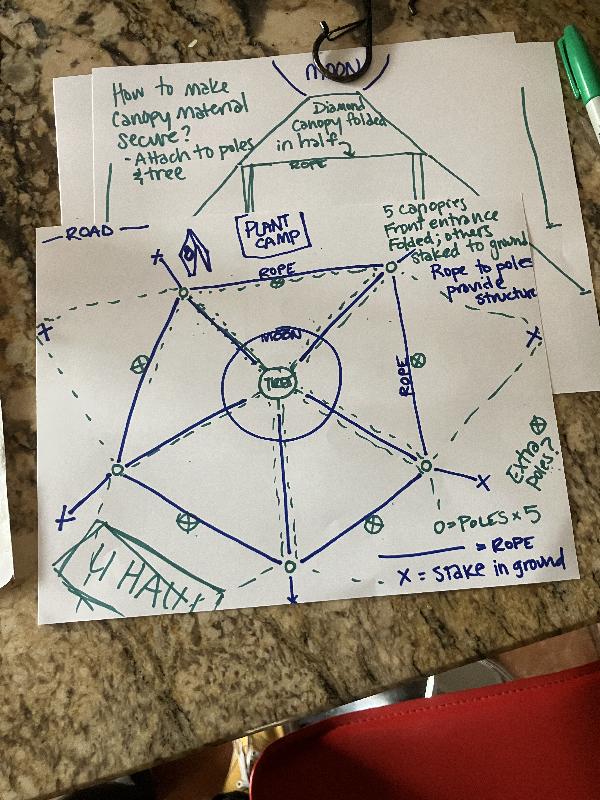 MOON
How to make
Canopy Material
secure?
- Attach to poles
& tree
Diamond
Canopy folded
in half
ROPE
PLANT
CAMP
5 canopies
Front entrance
Folded; others
staked to ground
Rope to poles
provide
structure
ROAD
X
ROPE
X
MOON
X
TREE
ROPE
Extra
Poles?
X
X
O = POLES x 5
= ROPE
X = Stake in ground
U HAUL
X